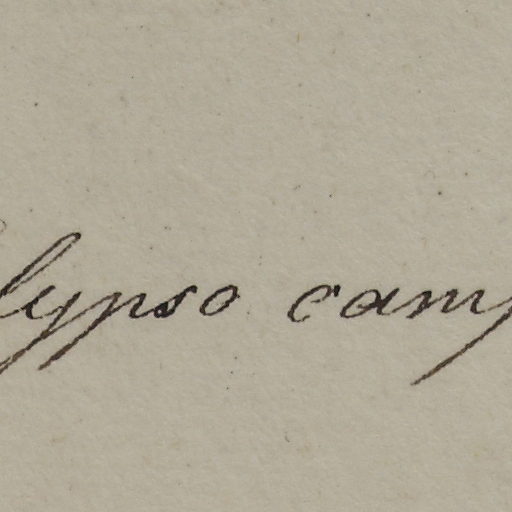 lypso camp